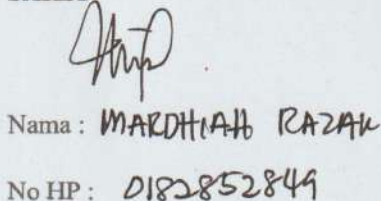 Nama : MARDHIAH RAZAK
No HP : 0182852849